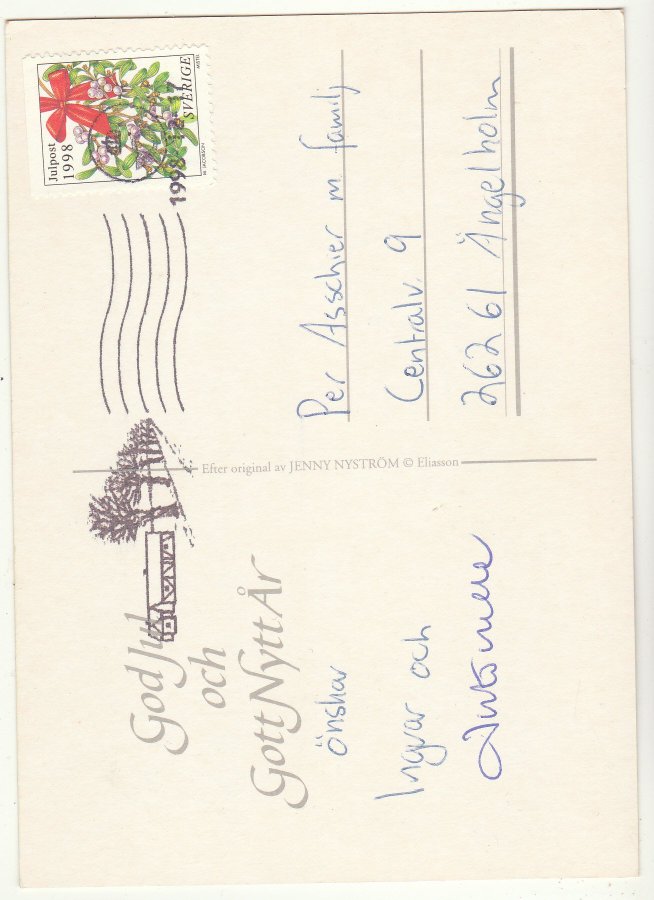 God Jul
och
Gott Nytt År
önskar
Ingvar och
Efter original av JENNY NYSTRÖM © Eliasson
Julpost
1998
SVERIGE
1998
Per Asschier m familj
Centralv. 9
262 61 Ängelholm